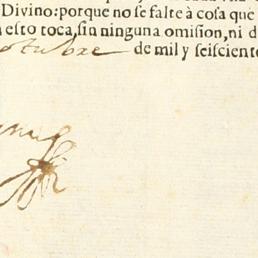 Divino: porque no se falte à cosa que
esto toca, sin ninguna omision, ni d
octubre de mil y seiscient